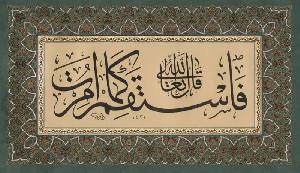 قال الله تعالى
فاستقم كما أمرت